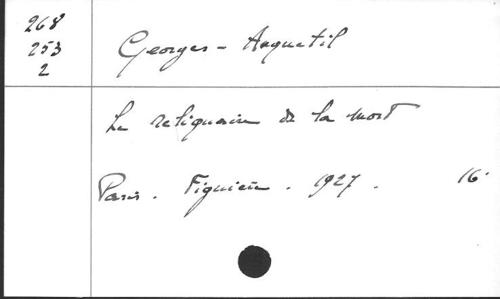 268
253
2
Georges - Anquetil
Le reliquaire de la mort
Paris. Figuière. 1927. 16°